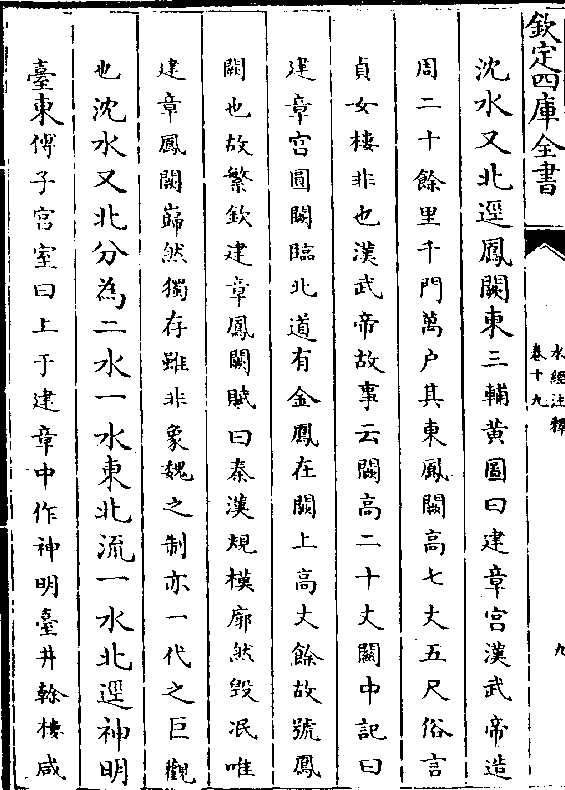 欽定四庫全書
水經注釋
卷十九
九
沈水又北逕鳳闕東三輔黃圖曰建章宮漢武帝造
周二十餘里千門萬户其東鳳闕高七丈五尺俗言
貞女樓非也漢武帝故事云闕高二十丈闗中記曰
建章宮圓闕臨北道有金鳳在闕上高丈餘故號鳳
闕也故繁欽建章鳳闕賦曰秦漢規模廓然毁泯唯
建章鳳闕巋然獨存雖非象魏之制亦一代之巨觀
也沈水又北分為二水一水東北流一水北逕神明
臺東傅子宫室曰上于建章中作神明臺井榦樓咸